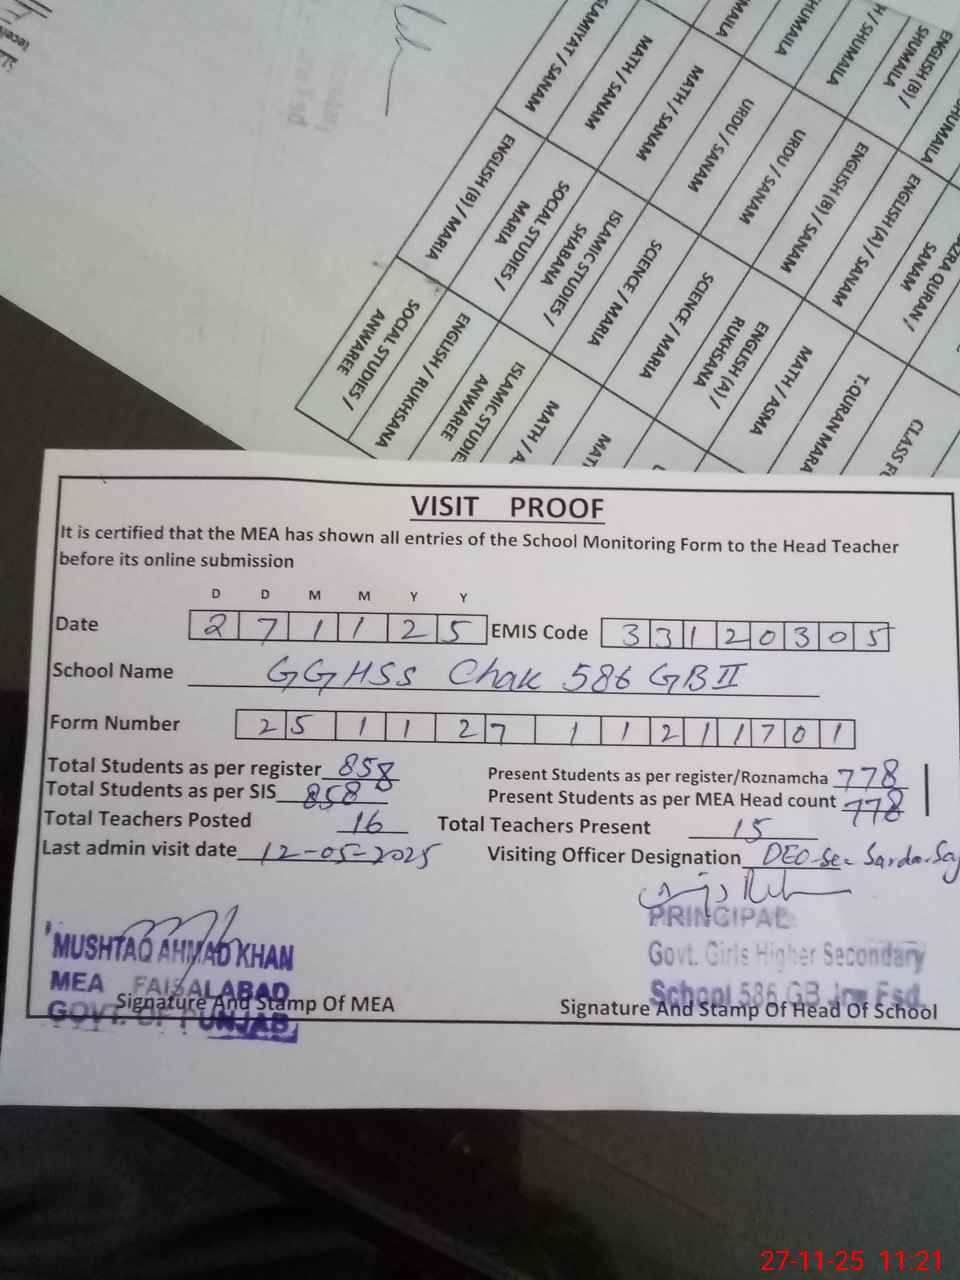 ISLAMIYAT / SANAM
MATH / SANAM
MATH / SANAM
URDU / SANAM
URDU / SANAM
ENGLISH (B) / SANAM
ENGLISH (A) / SANAM
SANAM
ENGLISH (B) /
SHUMAILA
ENGLISH (B) / MARIA
SOCIAL STUDIES /
MARIA
ISLAMIC STUDIES /
SHABANA
SCIENCE / MARIA
SCIENCE / MARIA
ENGLISH (A) /
RUKHSANA
MATH / ASMA
T.QURAN MARA
SOCIAL STUDIES /
ANWAREE
ENGLISH / RUKHSANA
ANWAREE
VISIT PROOF
It is certified that the MEA has shown all entries of the School Monitoring Form to the Head Teacher
before its online submission
D D M M Y Y
Date 2 7 1 1 2 5 EMIS Code 3 3 1 2 0 3 0 5
School Name GGHSS Chak 586 GB II
Form Number 2 5 1 1 2 7 1 1 2 1 1 7 0 1
Total Students as per register 858 Present Students as per register/Roznamcha 778
Total Students as per SIS 858 Present Students as per MEA Head count 778
Total Teachers Posted 16 Total Teachers Present 15
Last admin visit date 12-05-2025 Visiting Officer Designation DEO-Sec
PRINCIPAL
Govt. Girls Higher Secondary
School 586 GB Jrw Fsd.
MUSHTAQ AHMAD KHAN
MEA FAISALABAD
GOVT. OF PUNJAB
Signature And Stamp Of MEA Signature And Stamp Of Head Of School
27-11-25 11:21